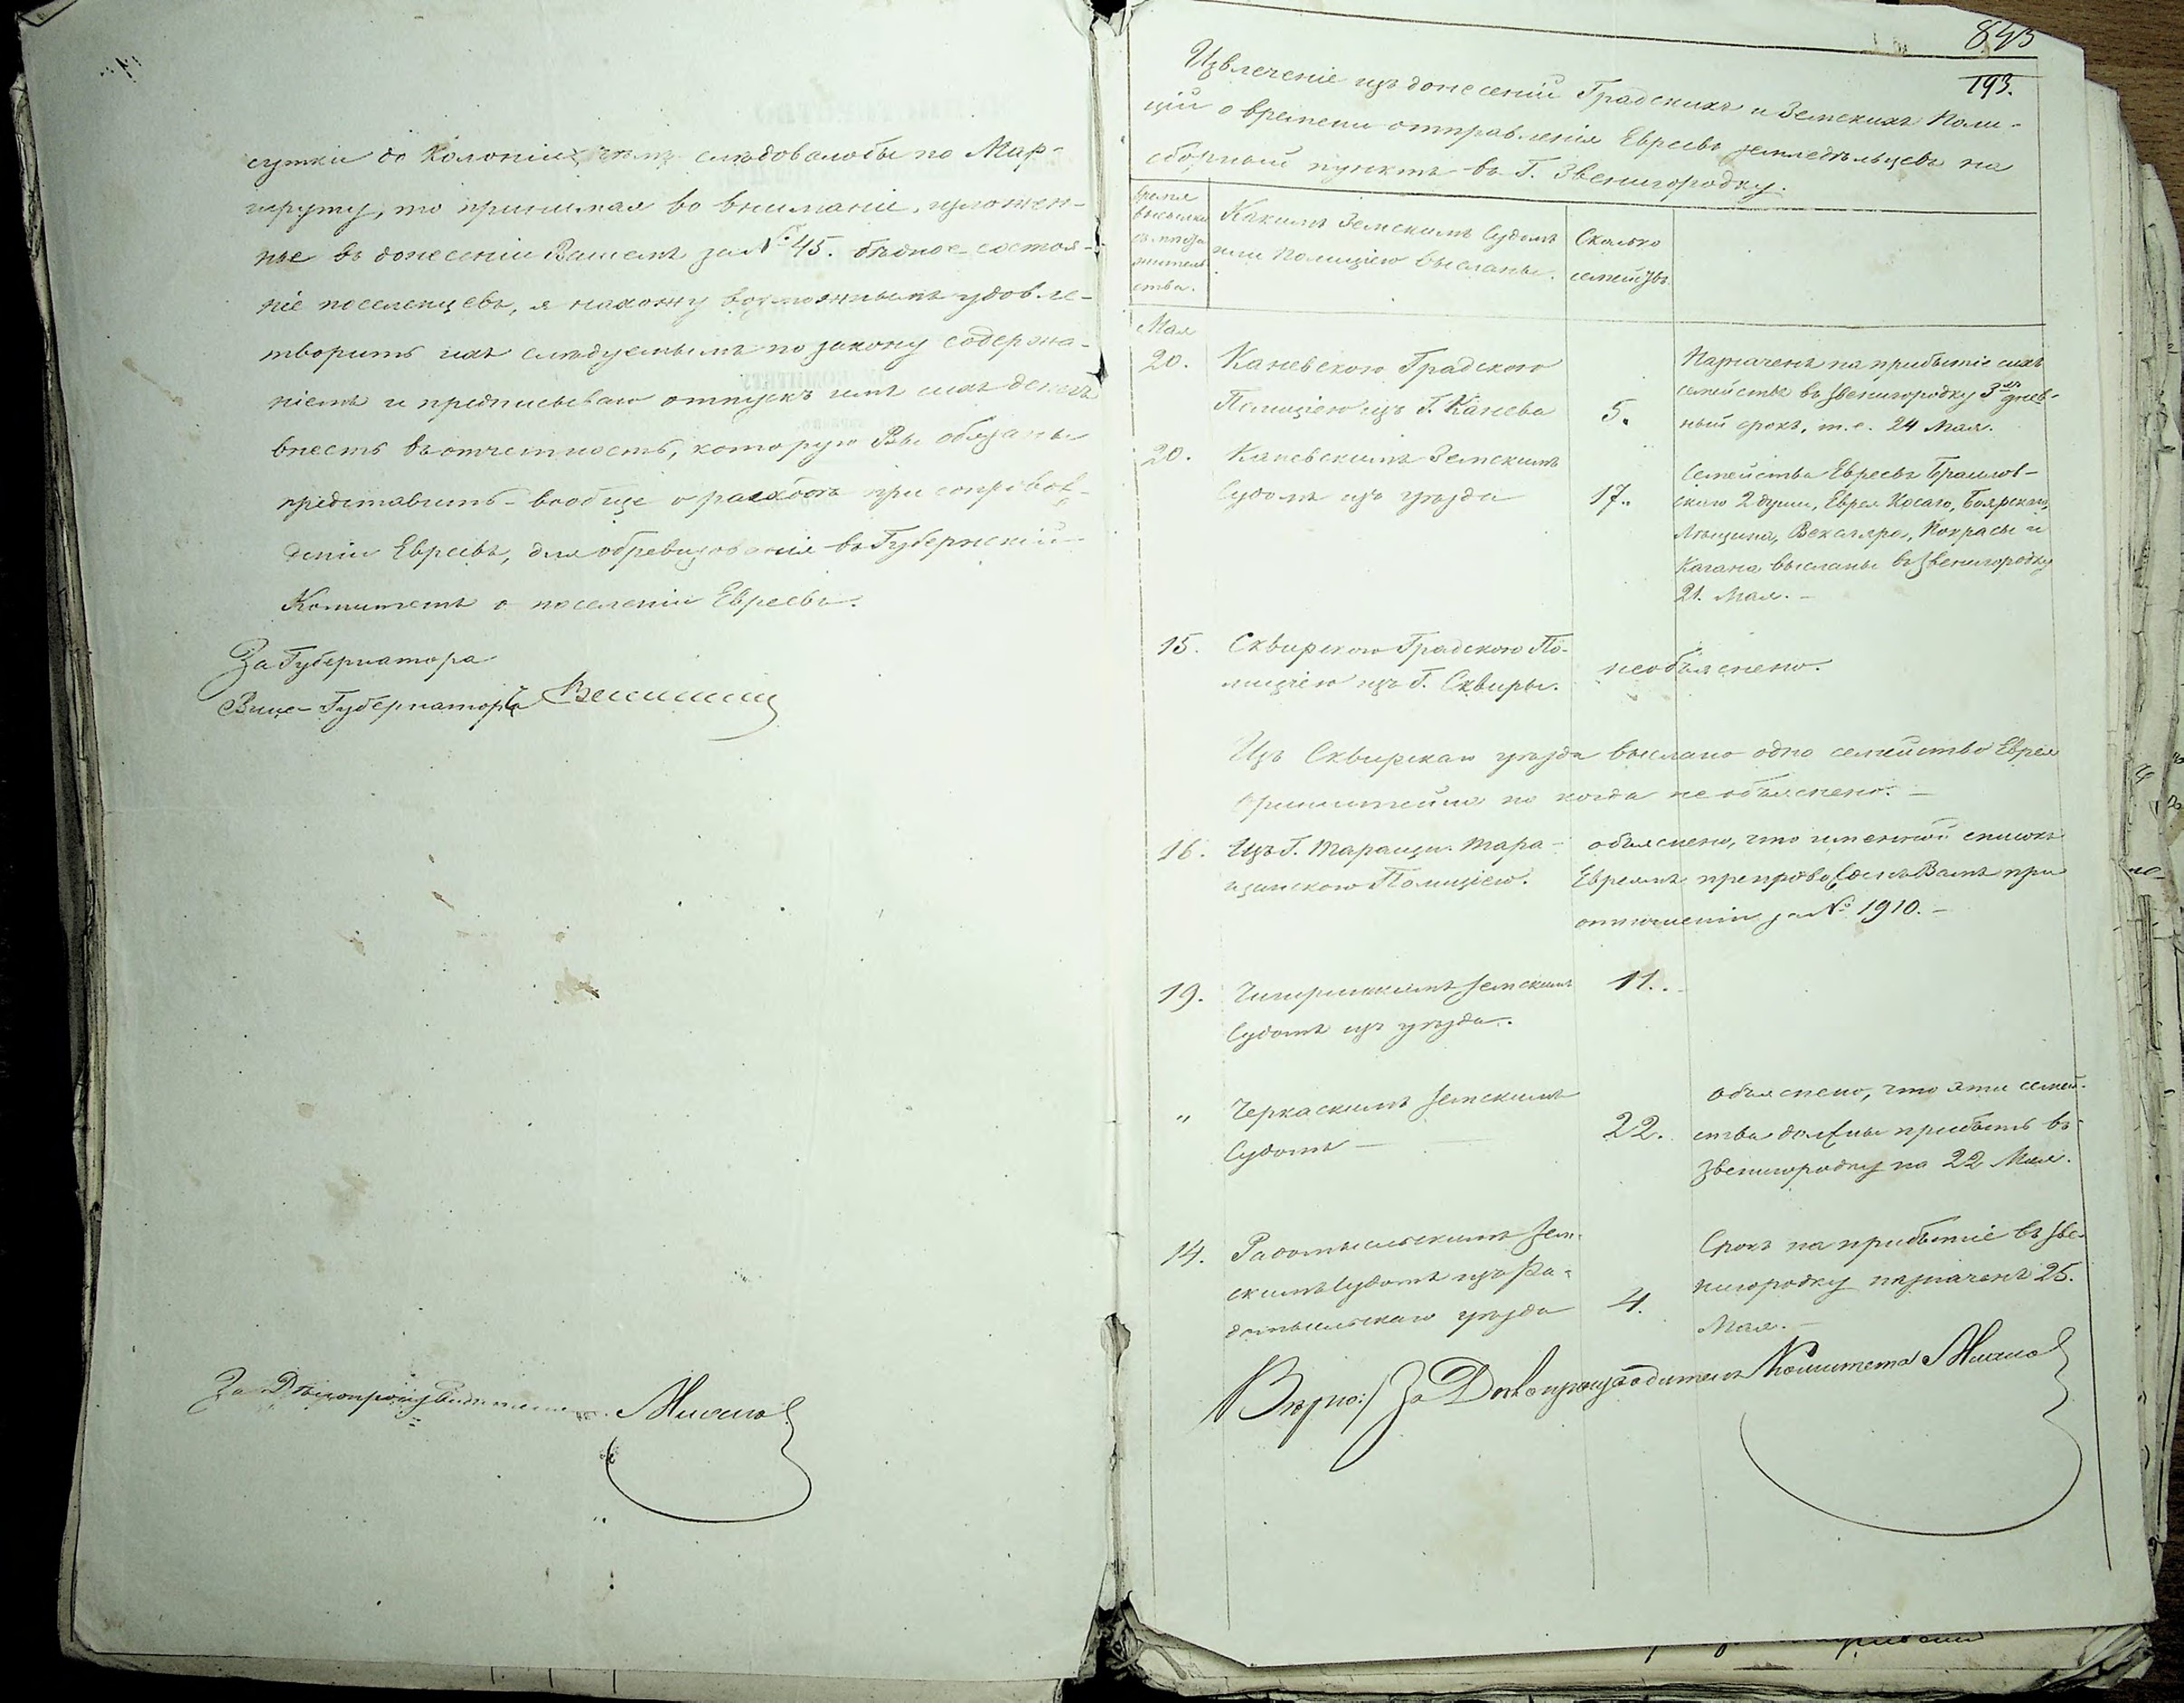 сутки до Колоніи, чѣмъ слѣдовалобы по Мар-
шруту, то принимая во вниманіе, изложен-
ное въ донесеніи Вашемъ за № 45. бѣдное состоя-
ніе поселенцевъ, я нахожу возможнымъ удовле-
творить ихъ слѣдуемымъ по закону содержа-
ніемъ и предписываю отпускъ имъ сихъ денегъ
внесть въ отчетность, которую Вы обязаны
представить вообще о расходѣ при сопровож-
деніи Евреевъ, для обревизованія въ Губернскій
Комитетъ о поселеніи Евреевъ.
За Губернатора
Вице-Губернаторъ
За Дѣлопроизводителя
843
193.
Извлеченіе изъ донесеній Градскихъ и Земскихъ Поли-
цій о времени отправленія Евреевъ земледѣльцевъ на
сборный пунктъ въ Г. Звенигородку.
Время
высылки
съ мѣста
житель
ства.
Какимъ Земскимъ Судомъ
или Полиціею высланы.
Сколько
семействъ
Мая
20.
Каневскою Градскою
Полиціею изъ Г. Канева
5.
Назначенъ на прибытіе сихъ
семействъ въ Звенигородку 3хъ днев-
ный срокъ, т. е. 24 Мая.
20.
Каневскимъ Земскимъ
Судомъ изъ уѣзда
17.
Семейства Евреевъ Браилов-
скаго 2 души, Еврея Косаго, Боярскаго,
Векслера, Покрасы и
Кагана высланы въ Звенигородку
21. Мая. –
15.
Сквирскою Градскою По-
лиціею изъ Г. Сквиры.
необъяснено.
Изъ Сквирскаго уѣзда выслано одно семейство Еврея
но когда необъяснено. –
16.
Изъ Г. Таращи. Тара-
щанскою Полиціею.
объяснено, что именной списокъ
Евреямъ препровожденъ Вамъ при
отношеніи за № 1910. –
19.
Чигиринскимъ Земскимъ
Судомъ изъ уѣзда.
11.
"
Черкаскимъ Земскимъ
Судомъ –
22.
Объяснено, что эти семей-
ства должны прибыть въ
Звенигородку на 22 Мая.
14.
Радомысльскимъ Зем-
скимъ Судомъ изъ Ра-
домысльскаго уѣзда
4.
Срокъ на прибытіе въ Зве-
нигородку назначенъ 25.
Мая. –
Вѣрно: За Дѣлопроизводителя Комитета